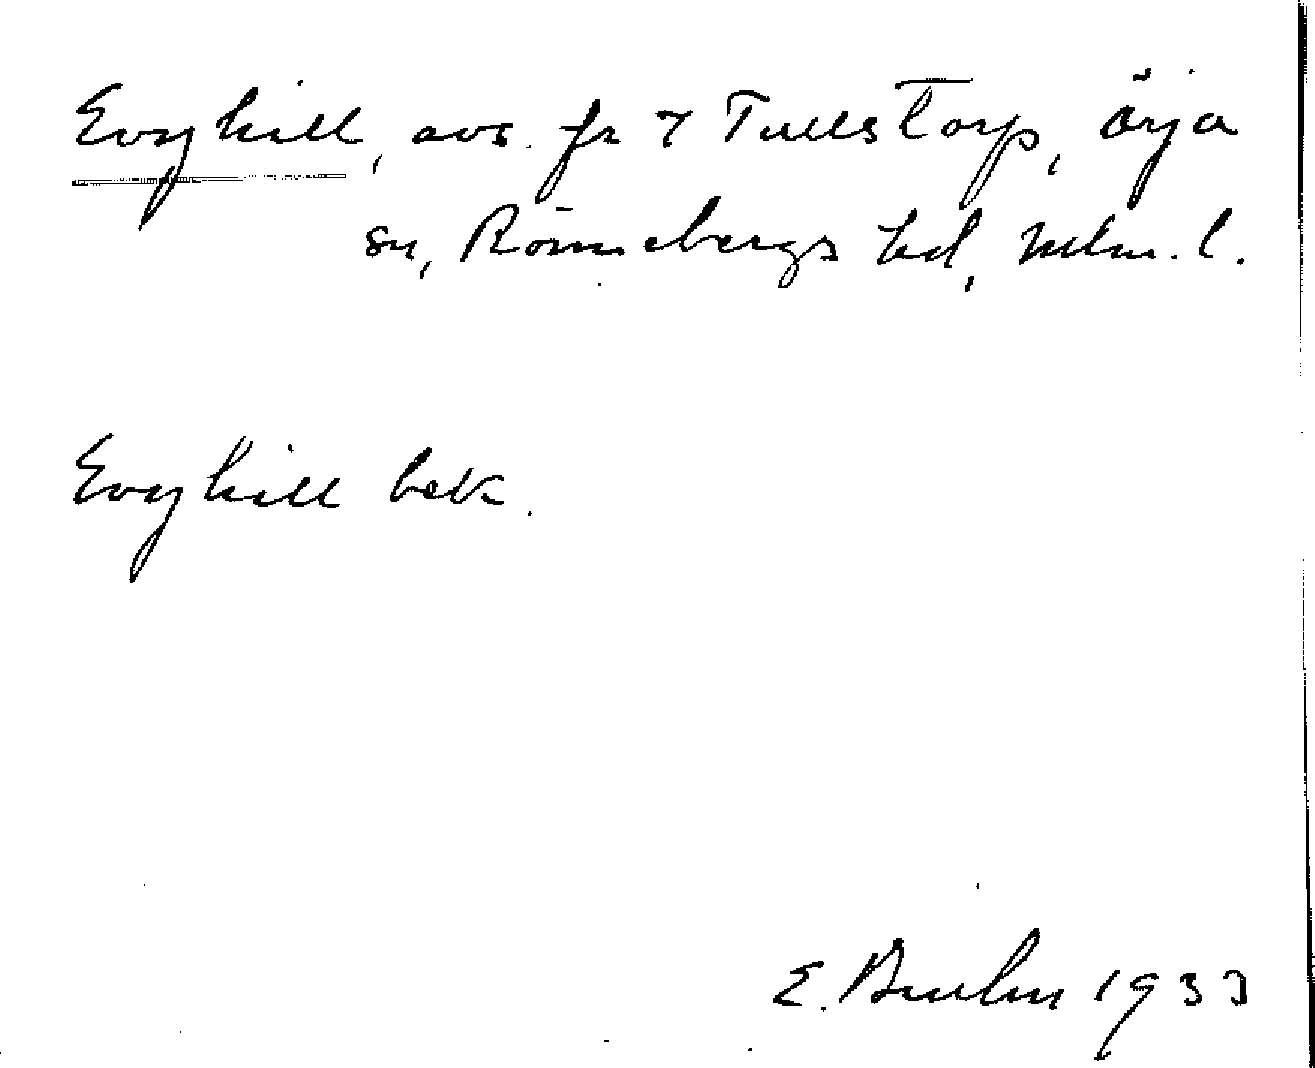 Evyhill, avs. fr 7 Tullstorp, Örja
sn, Rönnebergs hd, Mlm. l.
Evyhill bek.
E. Bruhn 1933